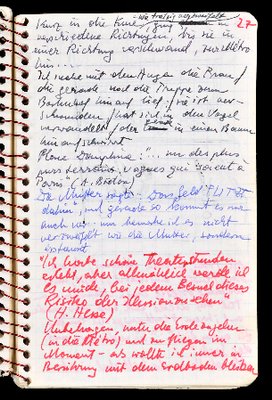 kurz in die Knie, ging in
verschiedene Richtungen, bis sie in
einer Richtung verschwand,
hin...
27
Ich suche mit den Augen die Frau,
die gerade noch die Treppe zum
Bahnhof hinauf lief, sie ist ver-
schwunden / hat sich in den Vogel
verwandelt, der in einen Baum
hinaufschwirrt
Place Dauphine: "... un des plus
pires terrains vagues qui soient à
Paris" (A. Breton)
Die Mutter sagte: Das Geld FLITZT
dahin, und gerade so kommt es mir
auch vor: nur bemerke ich es nicht
verzweifelt wie die Mutter, sondern
erstaunt
"Ich habe schöne Theaterstunden
erlebt, aber allmählich werde ich
es müde, bei jedem Bemel dieses
Risiko der Illusion zu sehen"
(H. Hesse)
Unbehagen, unter die Erde zu gehen
(in die Métro) und zu fliegen im
Moment – als wollte ich immer in
Berührung mit dem Erdboden bleiben